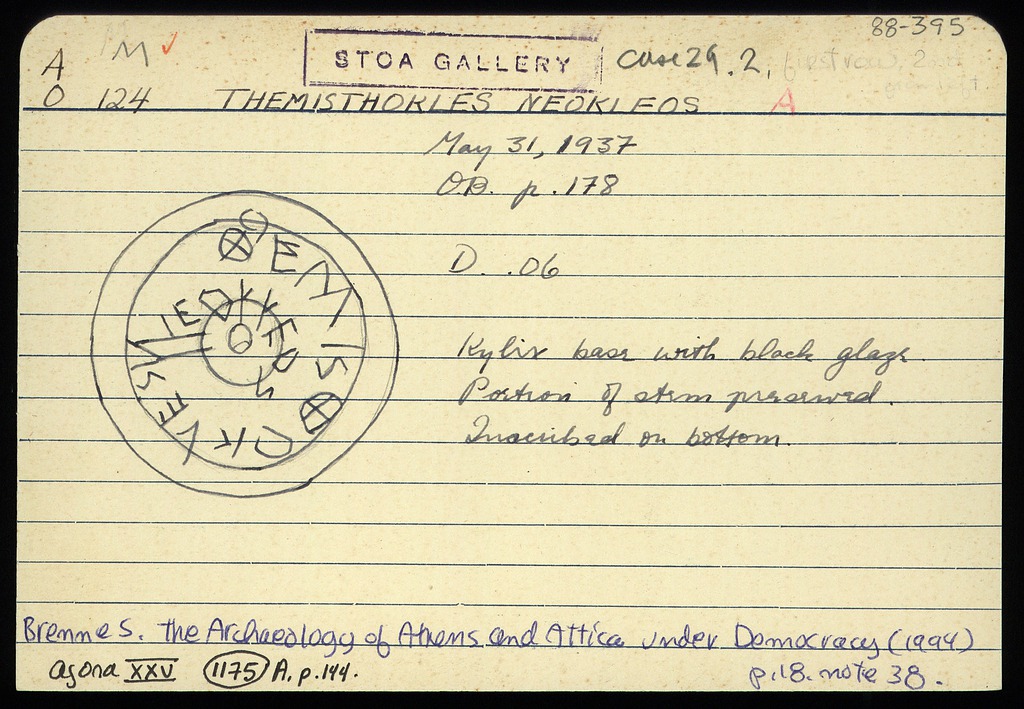 88-395
A M ✓ STOA GALLERY Case 29.2, first row, 2nd
O 124 THEMISTHOKLES NEOKLEOS A
May 31, 1937
O.B. p. 178
D. .06
⊗EMISΘOKLES
Kylix base with black glaze.
Portion of stem preserved.
Inscribed on bottom.
Brenne S. The Archaeology of Athens and Attica under Democracy (1994)
p.18. note 38.
Agora XXV 1175 A. p. 144.